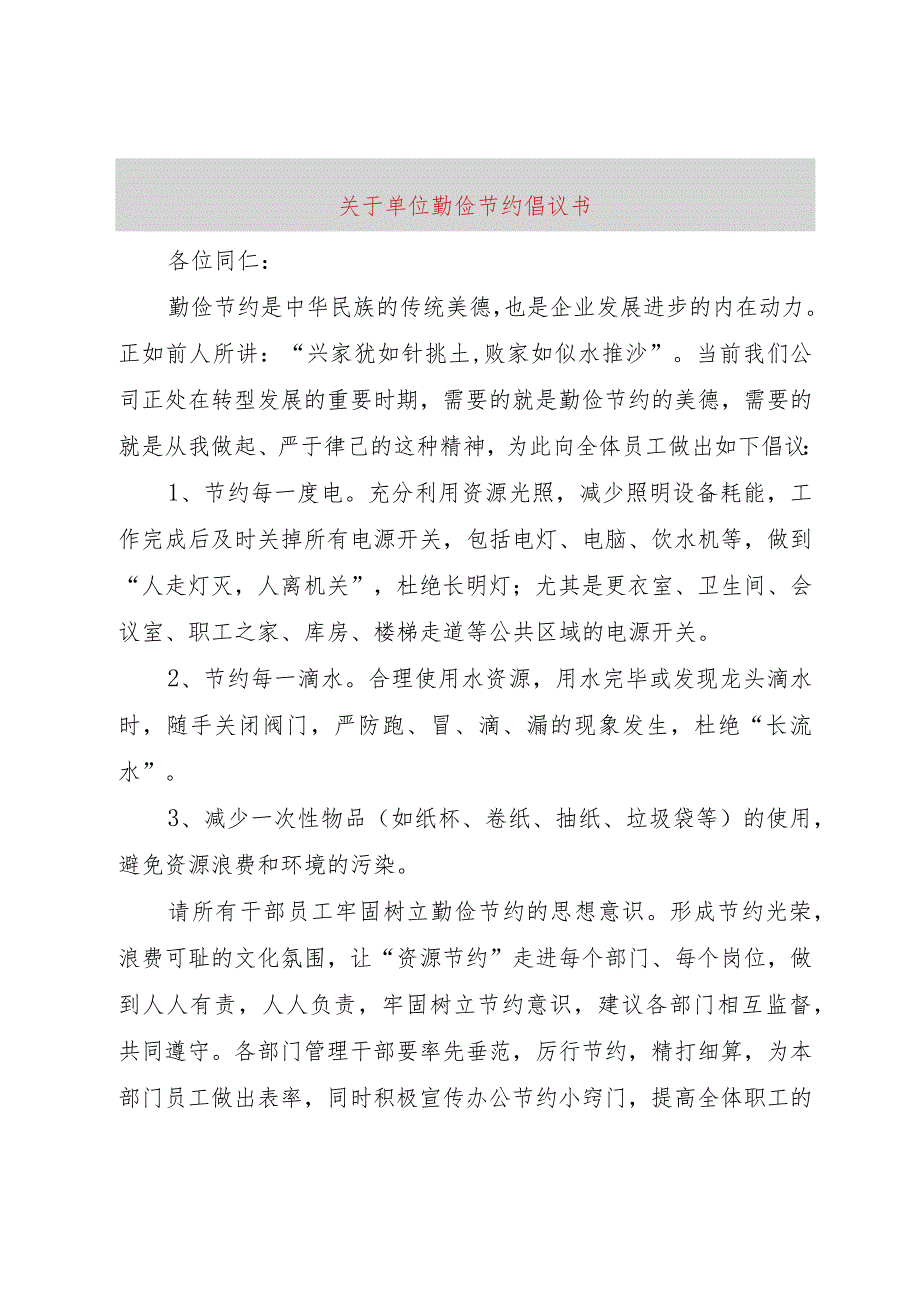 关于单位勤俭节约倡议书
各位同仁：
勤俭节约是中华民族的传统美德，也是企业发展进步的内在动力。
正如前人所讲：“兴家犹如针挑土,败家如似水推沙”。当前我们公
司正处在转型发展的重要时期，需要的就是勤俭节约的美德，需要的
就是从我做起、严于律己的这种精神，为此向全体员工做出如下倡议：
1、节约每一度电。充分利用资源光照，减少照明设备耗能，工
作完成后及时关掉所有电源开关，包括电灯、电脑、饮水机等，做到
“人走灯灭，人离机关”，杜绝长明灯；尤其是更衣室、卫生间、会
议室、职工之家、库房、楼梯走道等公共区域的电源开关。
2、节约每一滴水。合理使用水资源，用水完毕或发现龙头滴水
时，随手关闭阀门，严防跑、冒、滴、漏的现象发生，杜绝“长流
水”。
3、减少一次性物品（如纸杯、卷纸、抽纸、垃圾袋等）的使用，
避免资源浪费和环境的污染。
请所有干部员工牢固树立勤俭节约的思想意识。形成节约光荣，
浪费可耻的文化氛围，让“资源节约”走进每个部门、每个岗位，做
到人人有责，人人负责，牢固树立节约意识，建议各部门相互监督，
共同遵守。各部门管理干部要率先垂范，厉行节约，精打细算，为本
部门员工做出表率，同时积极宣传办公节约小窍门，提高全体职工的